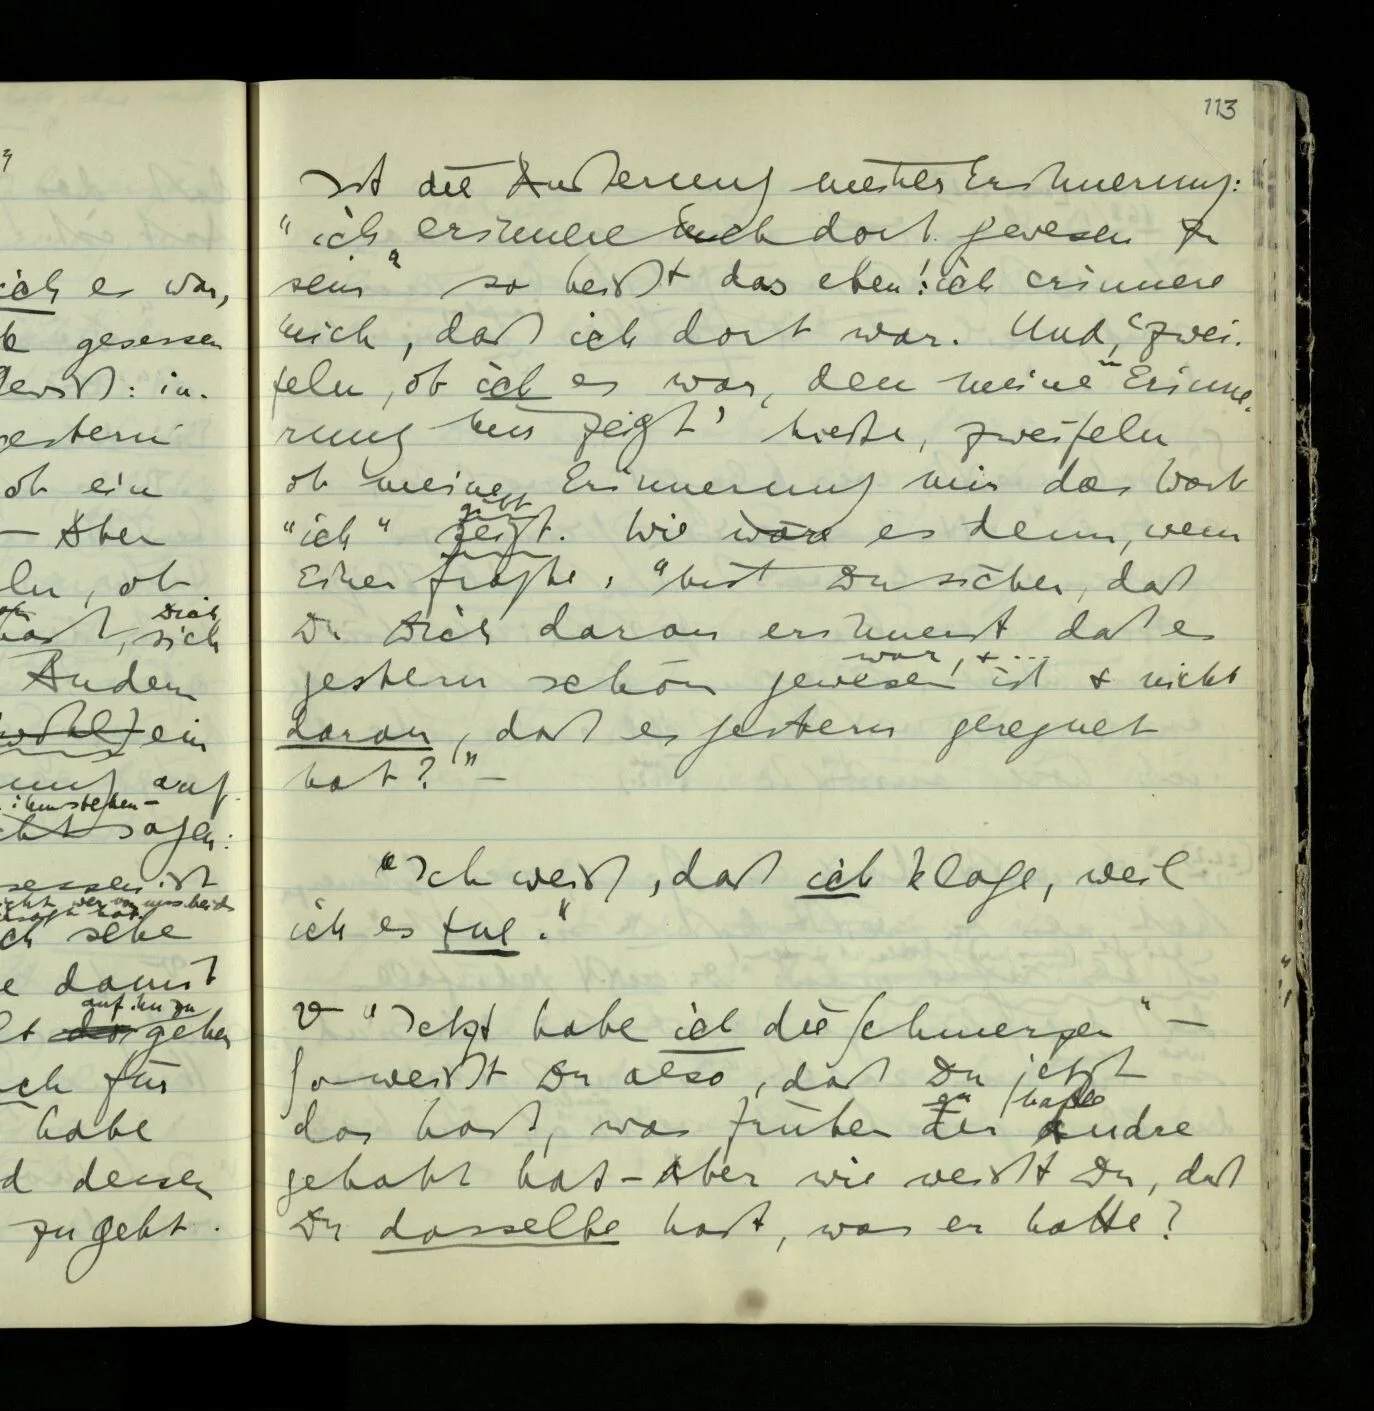 113
ich es war,
gesessen
gestern
ob ein
— Aber
ob
Dich
sich
Andern
ein
auf
ihm stehen —
sagen:
ist
ich sehe
damit
auf ihn zu
gehen
für
habe
dessen
zugeht.
Ist die Äußerung meiner Erinnerung:
"ich erinnere mich dort gewesen zu
sein" so heißt das eben: ich erinnere
mich, daß ich dort war. Und, 'zwei-
feln, ob ich es war, den meine Erinne-
rung mir zeigt' hieße, zweifeln
ob meine Erinnerung mir das Wort
gibt
"ich" zeigt. Wie wäre es denn, wenn
Einer fragte: "bist Du sicher, daß
Du Dich daran erinnerst daß es
war, & ...
gestern schön gewesen ist & nicht
daran, daß es gestern geregnet
hat?" —
"Ich weiß, daß ich klage, weil
ich es tue."
"Jetzt habe ich die Schmerzen" —
So weißt Du also, daß Du jetzt
hatte
das hast, was früher der andre
gehabt hat – Aber wie weißt Du, daß
Du dasselbe hast, was er hatte?